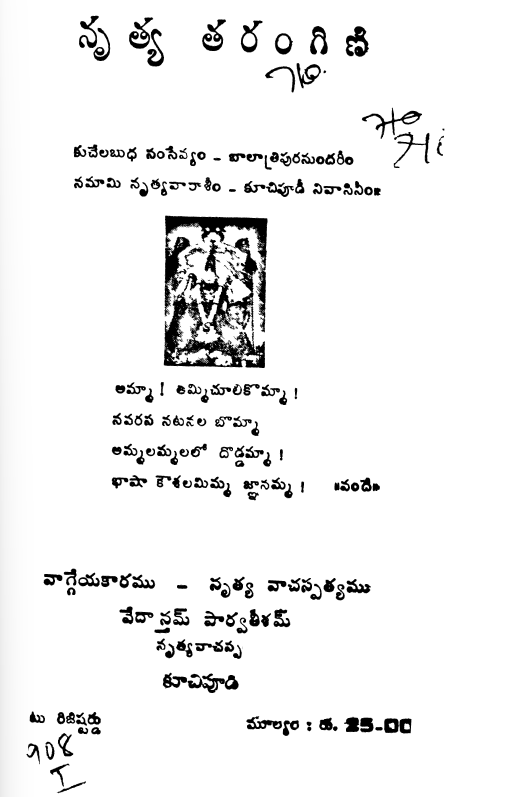 నృత్య తరంగిణి
కుచేలబుధ సంసేవ్యం - బాలాత్రిపురసుందరీం
నమామి నృత్యవారాశీం - కూచిపూడీ నివాసినీం॥
అమ్మా ! ఉమ్మిచూలికొమ్మా !
నవరవ నటనల బొమ్మా
అమ్మలమ్మలలో దొడ్డమ్మా !
భాషా కౌశలమిమ్మ జ్ఞానమ్మ ! ॥వందే॥
వాగ్గేయకారము - నృత్య వాచస్పత్యము
వేదాన్తమ్ పార్వతీశమ్
నృత్యవాచస్ప
కూచిపూడి
టు రిజిష్టర్డు
మూల్యం : రు. 25-00
908
I